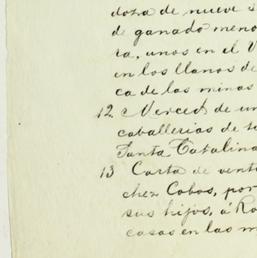 dora de nueve s
de ganado meno
ta, unos en el V
en los llanos de
ca de las minas
12 Merced de un
caballerias de te
Santa Catalina
13 Carta de vent
chez Cobos, por
sus hijos, á Ro
casas en las m